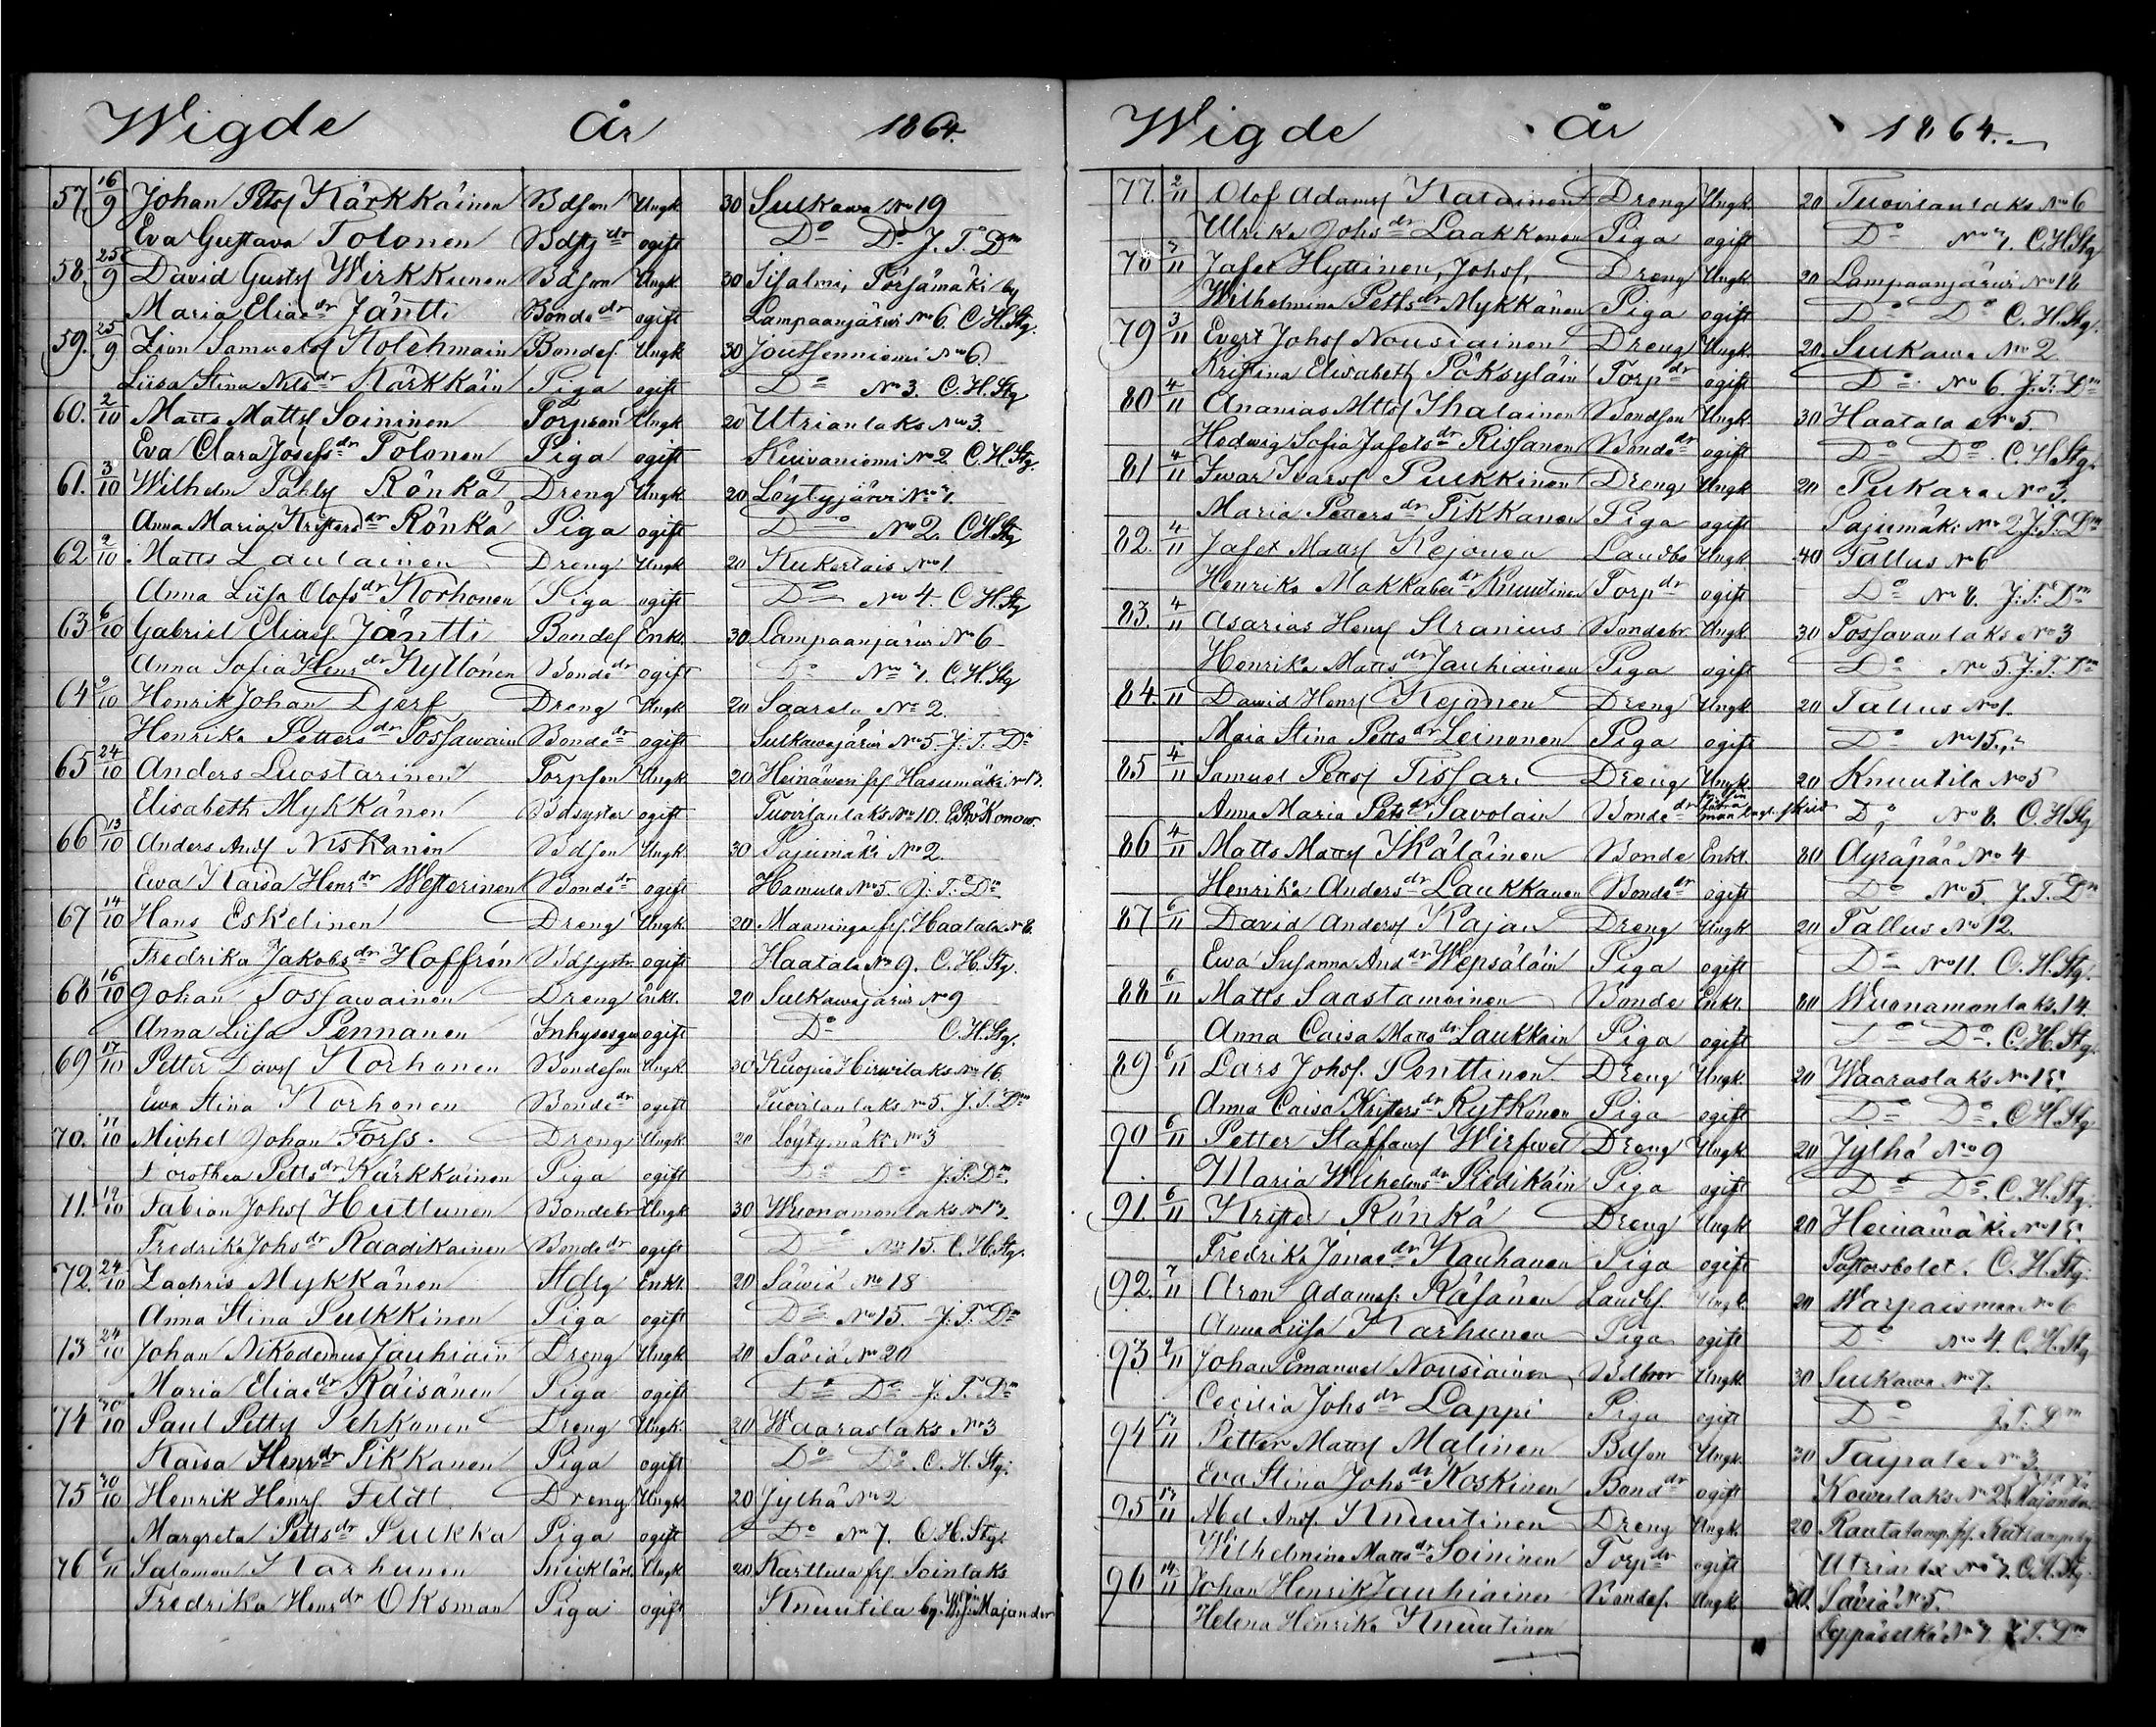 Wigde År 1864.
57. 16/9 Johan Petsf Kärkkäinen Bdson Ungk. 30 Sulkawa No 19
Eva Gustava Tolonen Bdsy dr ogift Do Do J. T. Dm
58. 25/9 David Gustsf Wirkkunen Bdson Ungk. 30 Iisalmi, Pörsämäki by
Maria Eliaedr Jäntti Bondedr ogift Lampaanjärwi No 6. C. H. Stg.
59. 25/9 Zion Samuelsf Kolehmain Bondes. Ungk. 30 Joutsenniemi No 6
Liisa Stina Nilsdr Kärkkäin Piga ogift Do No 3. C. H. Stg
60. 2/10 Matts Mattsf Soininen Torpson Ungk 20 Utrianlaks No 3
Eva Clara Josefsdr Tolonen Piga ogift Kuivaniemi No 2 C. H. Stg.
61. 3/10 Wilhelm Påhlsf Rönkä Dreng Ungk. 20 Löytyjärvi No 1.
Anna Maria Kristersdr Rönkä Piga ogift Do No 2. C H Stg
62 2/10 Matts Laulainen Dreng Ungk. 20 Kukertais No 1.
Anna Liisa Olofsdr Korhonen Piga ogift Do No 4. C H. Stg
63 6/10 Gabriel Eliasf Jäntti Bondes Enkl. 30 Lampaanjärwi No 6
Anna Sofia Hensdr Kyllönen Bondedr ogift Do No 1. C. H. Stg
64 9/10 Henrik Johan Djerf Dreng Ungk. 20 Saarela No 2.
Henrika Pettersdr Tossawain Bondedr ogift Sulkawajärwi No 5. J. T. Dm
65 24/10 Anders Luostarinen Torpson Ungk 20 Heinäwesi frs Hasumäki No 13.
Elisabeth Mykkänen Bdsyster ogift Tuovilanlaks No 10.
66 13/10 Anders Andsf Niskanen Bdson Ungk. 30 Pajumäki No 2.
Ewa Kaisa Henrdr Westerinen Bondedr ogift Hamula No 5. J. T. Dm
67 14/10 Hans Eskelinen Dreng Ungk. 20 Maaninga frs. Haatala No 8.
Fredrika Jakobsdr Hoffrén Bdsystr. ogift Haatala No 9. C. H. Stg.
68 16/10 Johan Tossawainen Dreng Enkl. 20 Sulkawajärwi No 9
Anna Liisa Pennanen Inhysesqw ogift Do C. H. Stg.
69 17/10 Petter Davsf Korhonen Bondeson Ungk. 30 Kuopio Hirwilaks No 16.
Ewa Stina Korhonen Bondedr ogift Tuovilanlaks No 5. J. T. Dm
70. 17/10 Michel Johan Forss. Dreng Ungk. 20 Löytymäki No 3
Dorothea Pettsdr Kärkkäinen Piga ogift Do Do J. T. Dm.
71. 19/10 Fabian Johsf Huttunen Bondebr Ungk. 30 Wuonamonlaks No 13.
Fredrika Johsdr Raadikainen Bondedr ogift Do No 15. C. H. Stg.
72. 24/10 Zachris Mykkänen Enkl. 20 Säwiä No 18
Anna Stina Pulkkinen Piga ogift Do No 15. J. T. Dm
73 24/10 Johan Nikodemus Jauhiain Dreng Ungk. 20 Säviä No 20
Maria Eliaedr Räisänen Piga ogift Do Do J. T. Dm
74 30/10 Paul Pettsf Pehkonen Dreng Ungk. 20 Waaraslaks No 3
Kaisa Henrdr Pikkanen Piga ogift Do Do. C. H. Stg.
75 30/10 Henrik Henrsf Feldt Dreng Ungk. 20 Jylhä No 2
Margreta Pettsdr Pulkka Piga ogift Do No 7. C. H. Stg.
76 Salomon Karhunen Ungk. 20 Karttula frs Sointaks
Fredrika Henrdr Oksman Piga ogift Knuutila by. Majander
Wigde år 1864.
77. 2/11 Olof Adamsf Katainen Dreng Ungk. 20 Tuovilanlaks No 6
Ulrika Johsdr Laakkonen Piga ogift Do No 1. C. H. Stg
78 3/11 Jafet Hyttinen, Johsf. Dreng Ungk 20 Lampaanjärwi No 16
Wilhelmina Pettsdr Mykkänen Piga ogift Do Do C. H. Stg.
79 3/11 Evert Johsf Nousiainen Dreng Ungk. 20 Sulkawa No 2
Kristina Elisabeth Pöksyläin Torpdr ogift Do No 6. J. T. Dm
80 4/11 Ananias Mttsf Ihalainen Bondson Ungk. 30 Haatala No 5.
Hedwig Sofia Jafetsdr Rissanen Bondedr ogift Do Do. C. H. Stg.
81 4/11 Iwar Ivarsf Pulkkinen Dreng Ungk 20 Pukara No 3.
Maria Pettersdr Pikkanen Piga ogift Pajumäki No 2. J. T. Dm
82. 4/11 Jafet Mattsf Kejonen Landbo Ungk 40 Tallus No 6
Henrika Makkabeidr Knuutinen Torpdr ogift Do No 8. J. T. Dm
83. 4/11 Asarias Henrsf Stranius Bondebr Ungk 30 Tossavanlaks No 3
Henrika Mattsdr Jauhiainen Piga ogift Do No 5. J. T. Dm
84. David Henrsf Kejonen Dreng Ungk 20 Tallus No 1.
Maia Stina Pettsdr Leinonen Piga ogift Do No 15.
85 4/11 Samuel Pettsf Tissari Dreng Ungk. 20 Knuutila No 5
Anna Maria Petsdr Savolain Bondedr Do No 8. C. H. Stg
86 4/11 Matts Mattsf Ikäläinen Bonde Enkl. 80 Äyräpää No 4
Henrika Andersdr Laukkanen Bondedr ogift Do No 5. J. T. Dm
87 6/11 David Andersf Rajan Dreng Ungk 20 Tallus No 12.
Ewa Susanna Anddr Wepsäläin Piga ogift Do No 11. C. H. Stg.
88 6/11 Matts Saastamoinen Bonde Enkl. 80 Wuonamonlaks. 14.
Anna Caisa Mattsdr Laukkain Piga ogift Do Do. C. H. Stg.
89 6/11 Lars Johsf. Penttinen. Dreng Ungk. 20 Waaraslaks No 15
Anna Caisa Kristersdr Rytkönen Piga ogift Do Do. C. H. Stg
90 6/11 Petter Staffansf Wirfwel Dreng Ungk. 20 Jylhä No 9
Maria Wilhelmsdr Piedikäin Piga ogift Do Do. C. H. Stg.
91. 6/11 Krister Rönkä Dreng Ungk 20 Heinämäki No 15
Fredrika Jonaedr Kauhanen Piga ogift Pastorsbolet. C. H. Stg.
92. 7/11 Aron Adamsf. Räsänen Landbs. Ungk. 20 Warpaismaa No 6
Anna Liisa Karhunen Piga ogift Do No 4. C. H. Stg
93. 9/11 Johan Emanuel Nousiainen Bdbror Ungk. 30 Sulkawa No 7.
Cecilia Johsdr Lappi Piga ogift Do J. T. Dm
94 13/11 Petter Mattsf Malinen Bdson Ungk. 30 Taipale No 3
Eva Stina Johsdr Koskinen Bonddr ogift Kowerlaks No 2. Majander
95 13/11 Abel Andsf. Knuutinen Dreng Ungk. 20 Rautalamp. frs.
Wilhelmina Mattsdr Soininen Torpdr ogift Utrianlx No 7. C. H. Stg.
96 14/11 Johan Henrik Jauhiainen Bondes. Ungk. 30. Säviä No 5.
Helena Henrika Knuutinen Leppäselkä No 7 J. T. Dm